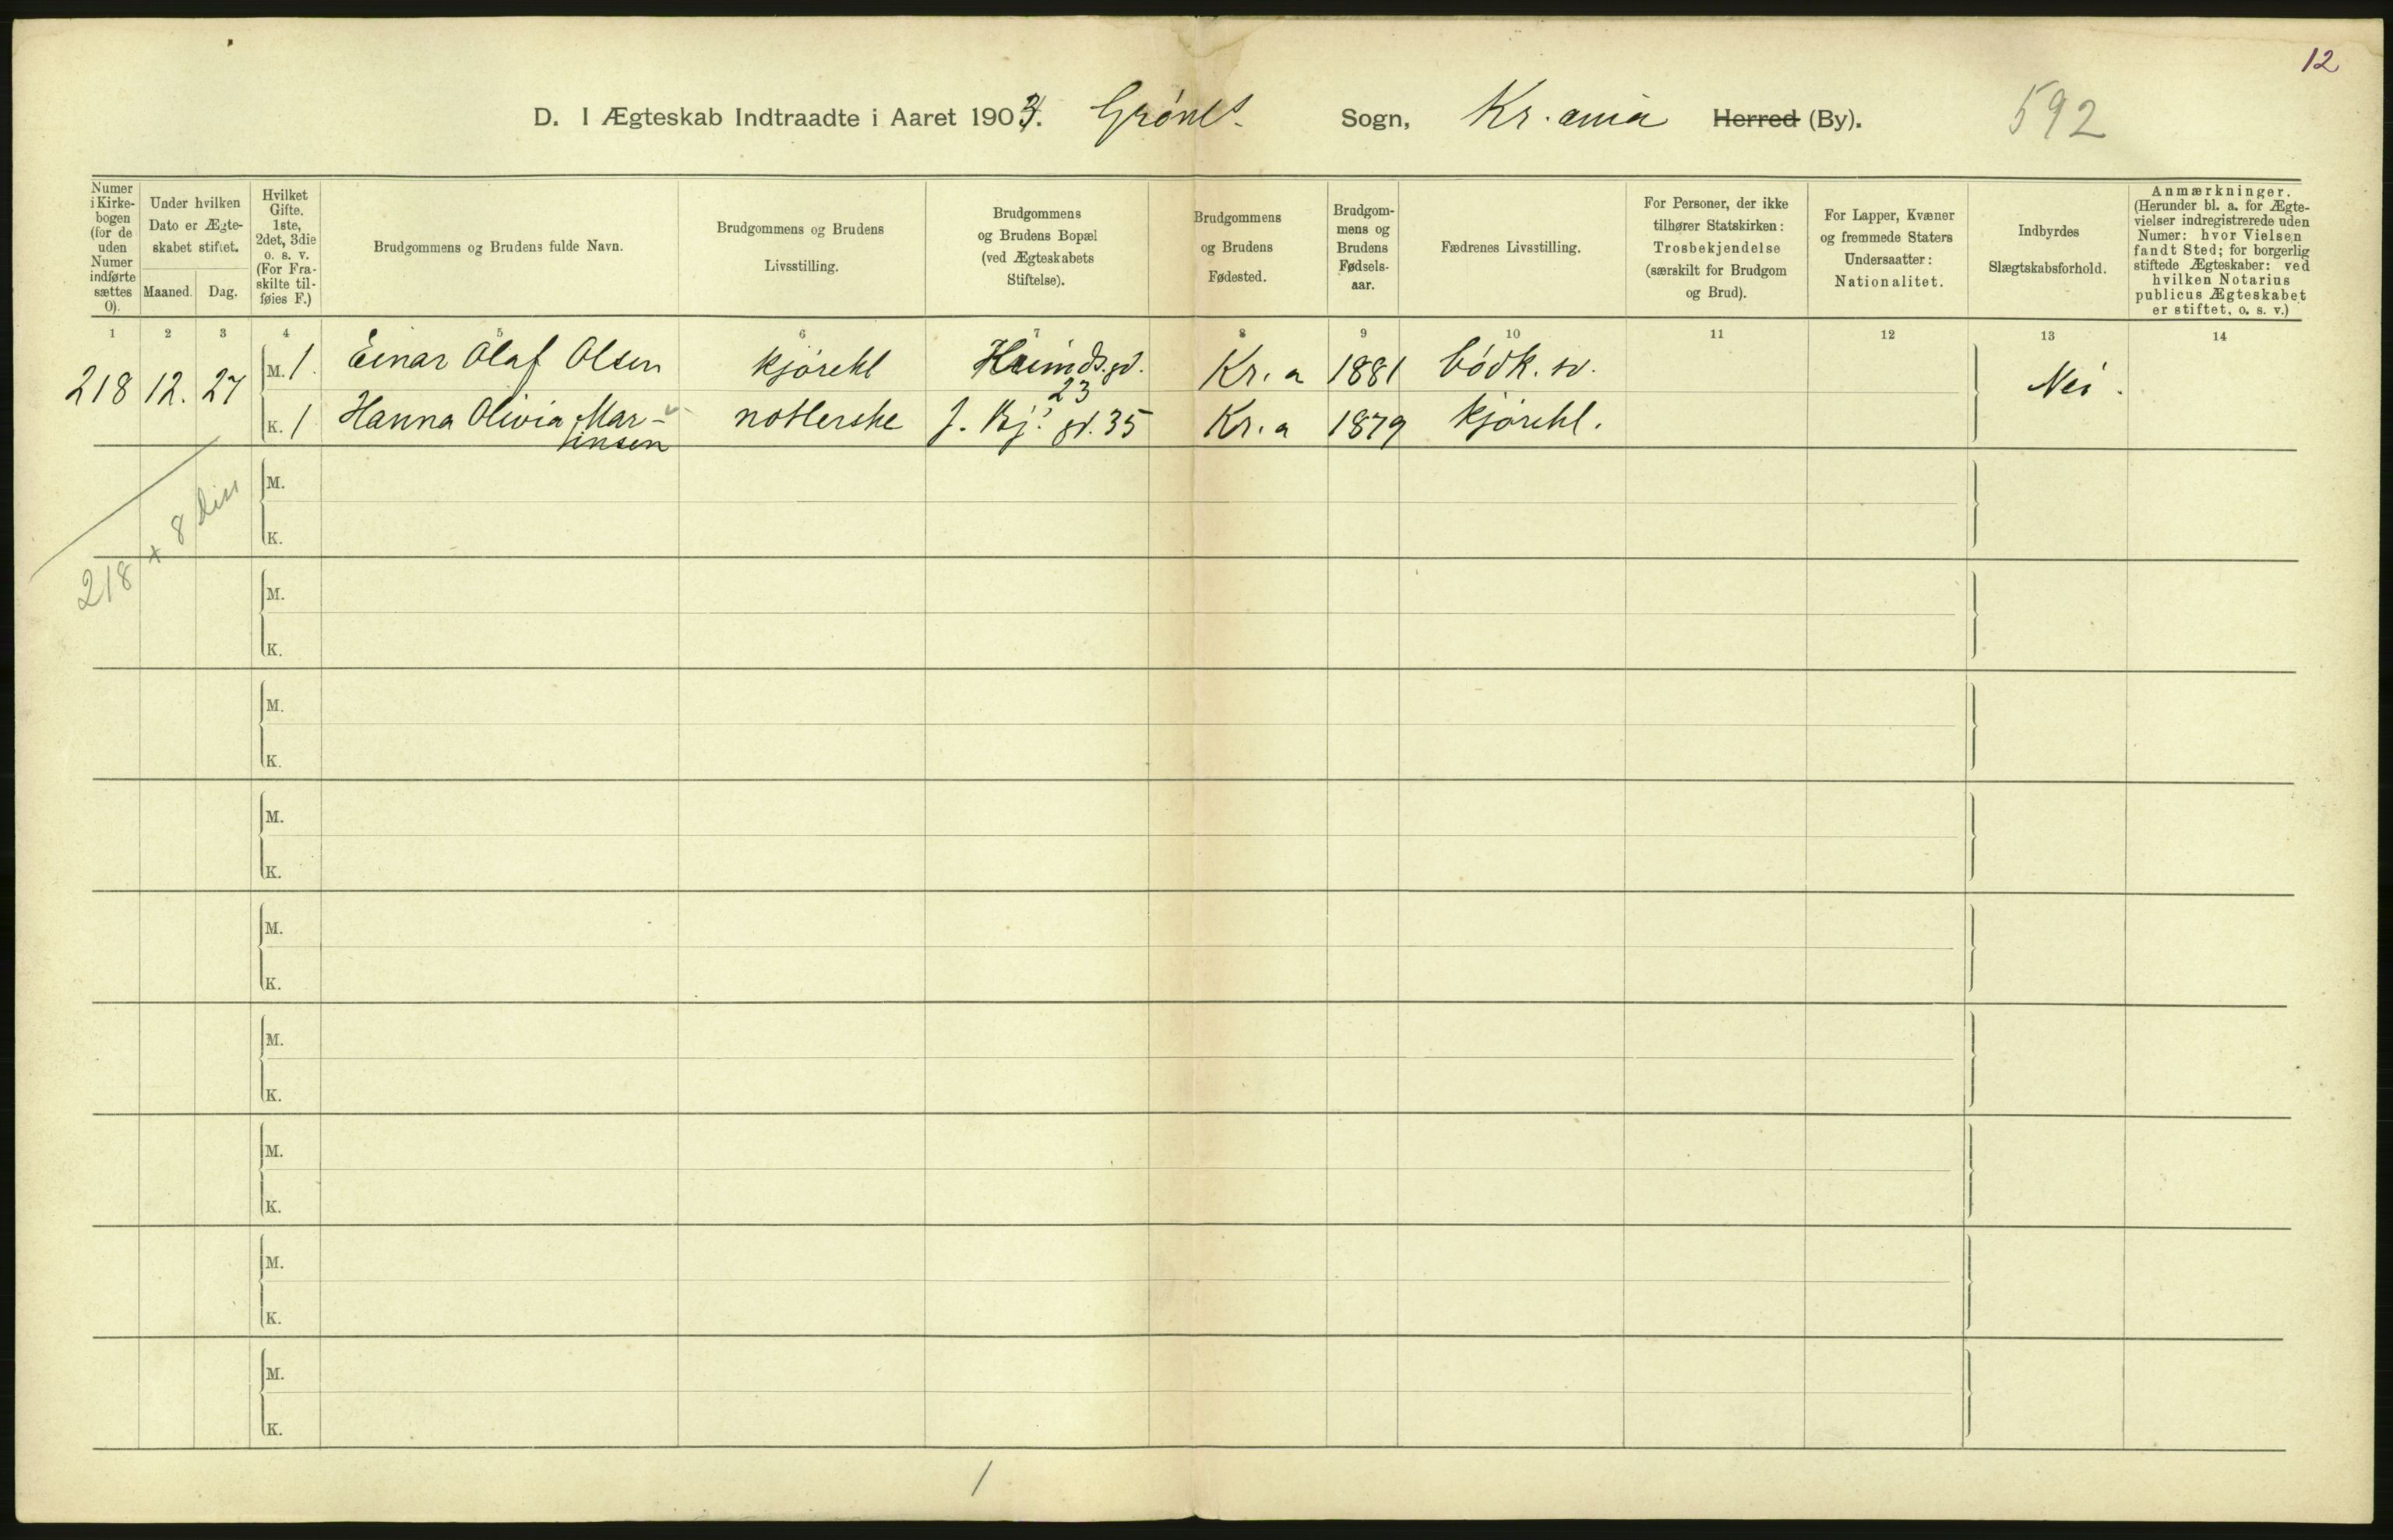 12
D. I Ægteskab Indtraadte i Aaret 1903. Grønl. Sogn, Kr.ania Herred (By). 592
Numer i Kirkebogen (for de uden Numer indførte sættes 0).
Under hvilken Dato er Ægteskabet stiftet.
Maaned. Dag.
Hvilket Gifte. 1ste, 2det, 3die o. s. v. (For Fraskilte tilføies F.)
Brudgommens og Brudens fulde Navn.
Brudgommens og Brudens Livsstilling.
Brudgommens og Brudens Bopæl (ved Ægteskabets Stiftelse).
Brudgommens og Brudens Fødested.
Brudgommens og Brudens Fødselsaar.
Fædrenes Livsstilling.
For Personer, der ikke tilhører Statskirken: Trosbekjendelse (særskilt for Brudgom og Brud).
For Lapper, Kvæner og fremmede Staters Undersaatter: Nationalitet.
Indbyrdes Slægtskabsforhold.
Anmærkninger. (Herunder bl. a. for Ægtevielser indregistrerede uden Numer: hvor Vielsen fandt Sted; for borgerlig stiftede Ægteskaber: ved hvilken Notarius publicus Ægteskabet er stiftet, o. s. v.)
1 2 3 4 5 6 7 8 9 10 11 12 13 14
218 12. 27 M. 1. Einar Olaf Olsen kjørekl gd. 23 Kr.a 1881 bødk. sv. Nei.
K. 1 Hanna Olivia Martinsen notlerske J. Bj. gd. 35 Kr.a 1879 kjørekl.
M.
K.
218 + 8 diss
M.
K.
M.
K.
M.
K.
M.
K.
M.
K.
M.
K.
M.
K.
M.
K.
1